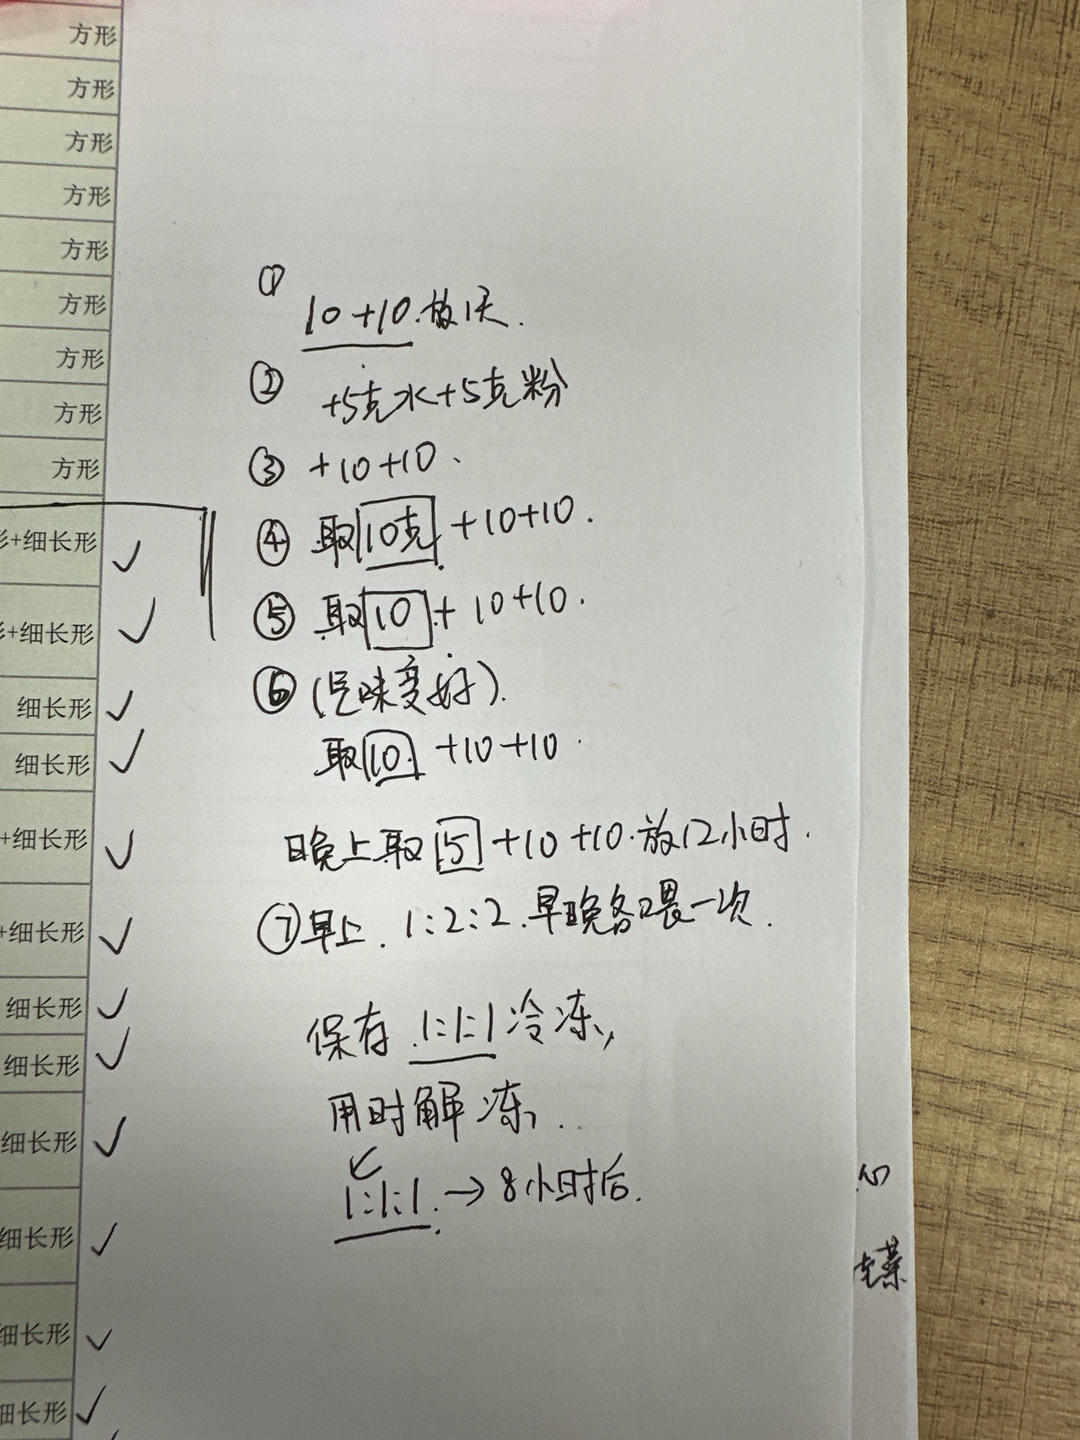 方形
方形
方形
方形
方形
方形
方形
方形
方形
+细长形 ✓
+细长形 ✓
细长形 ✓
细长形 ✓
+细长形 ✓
+细长形 ✓
细长形 ✓
细长形 ✓
细长形 ✓
细长形 ✓
细长形 ✓
细长形 ✓
①
10+10.放1天.
② +5克水+5克粉
③ +10+10.
④ 取10克+10+10.
⑤ 取10+10+10.
⑥ (气味变好).
取10+10+10.
晚上取5+10+10.放12小时.
⑦早上.1:2:2.早晚各喂一次.
保存.1:1:1冷冻,
用时解冻,..
1:1:1.→8小时后.